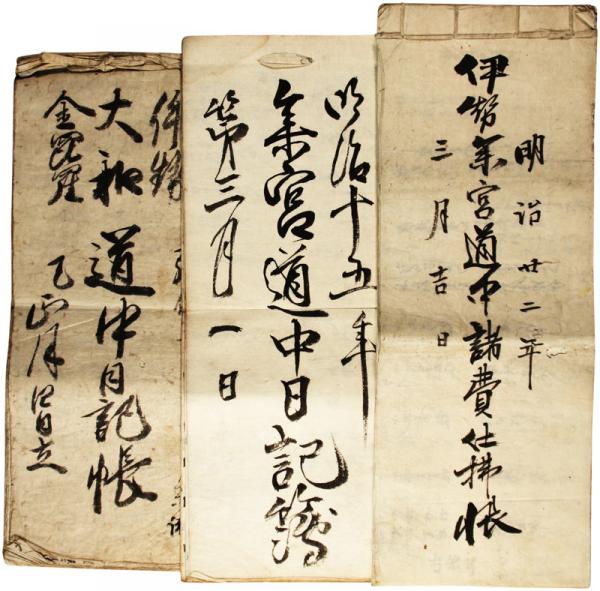 明治廿二年
伊勢参宮道中諸費仕拂帳
三月吉日
明治十五年
参宮道中日記簿
第三月一日
伊勢
大和道中日記帳
金毘羅
正月